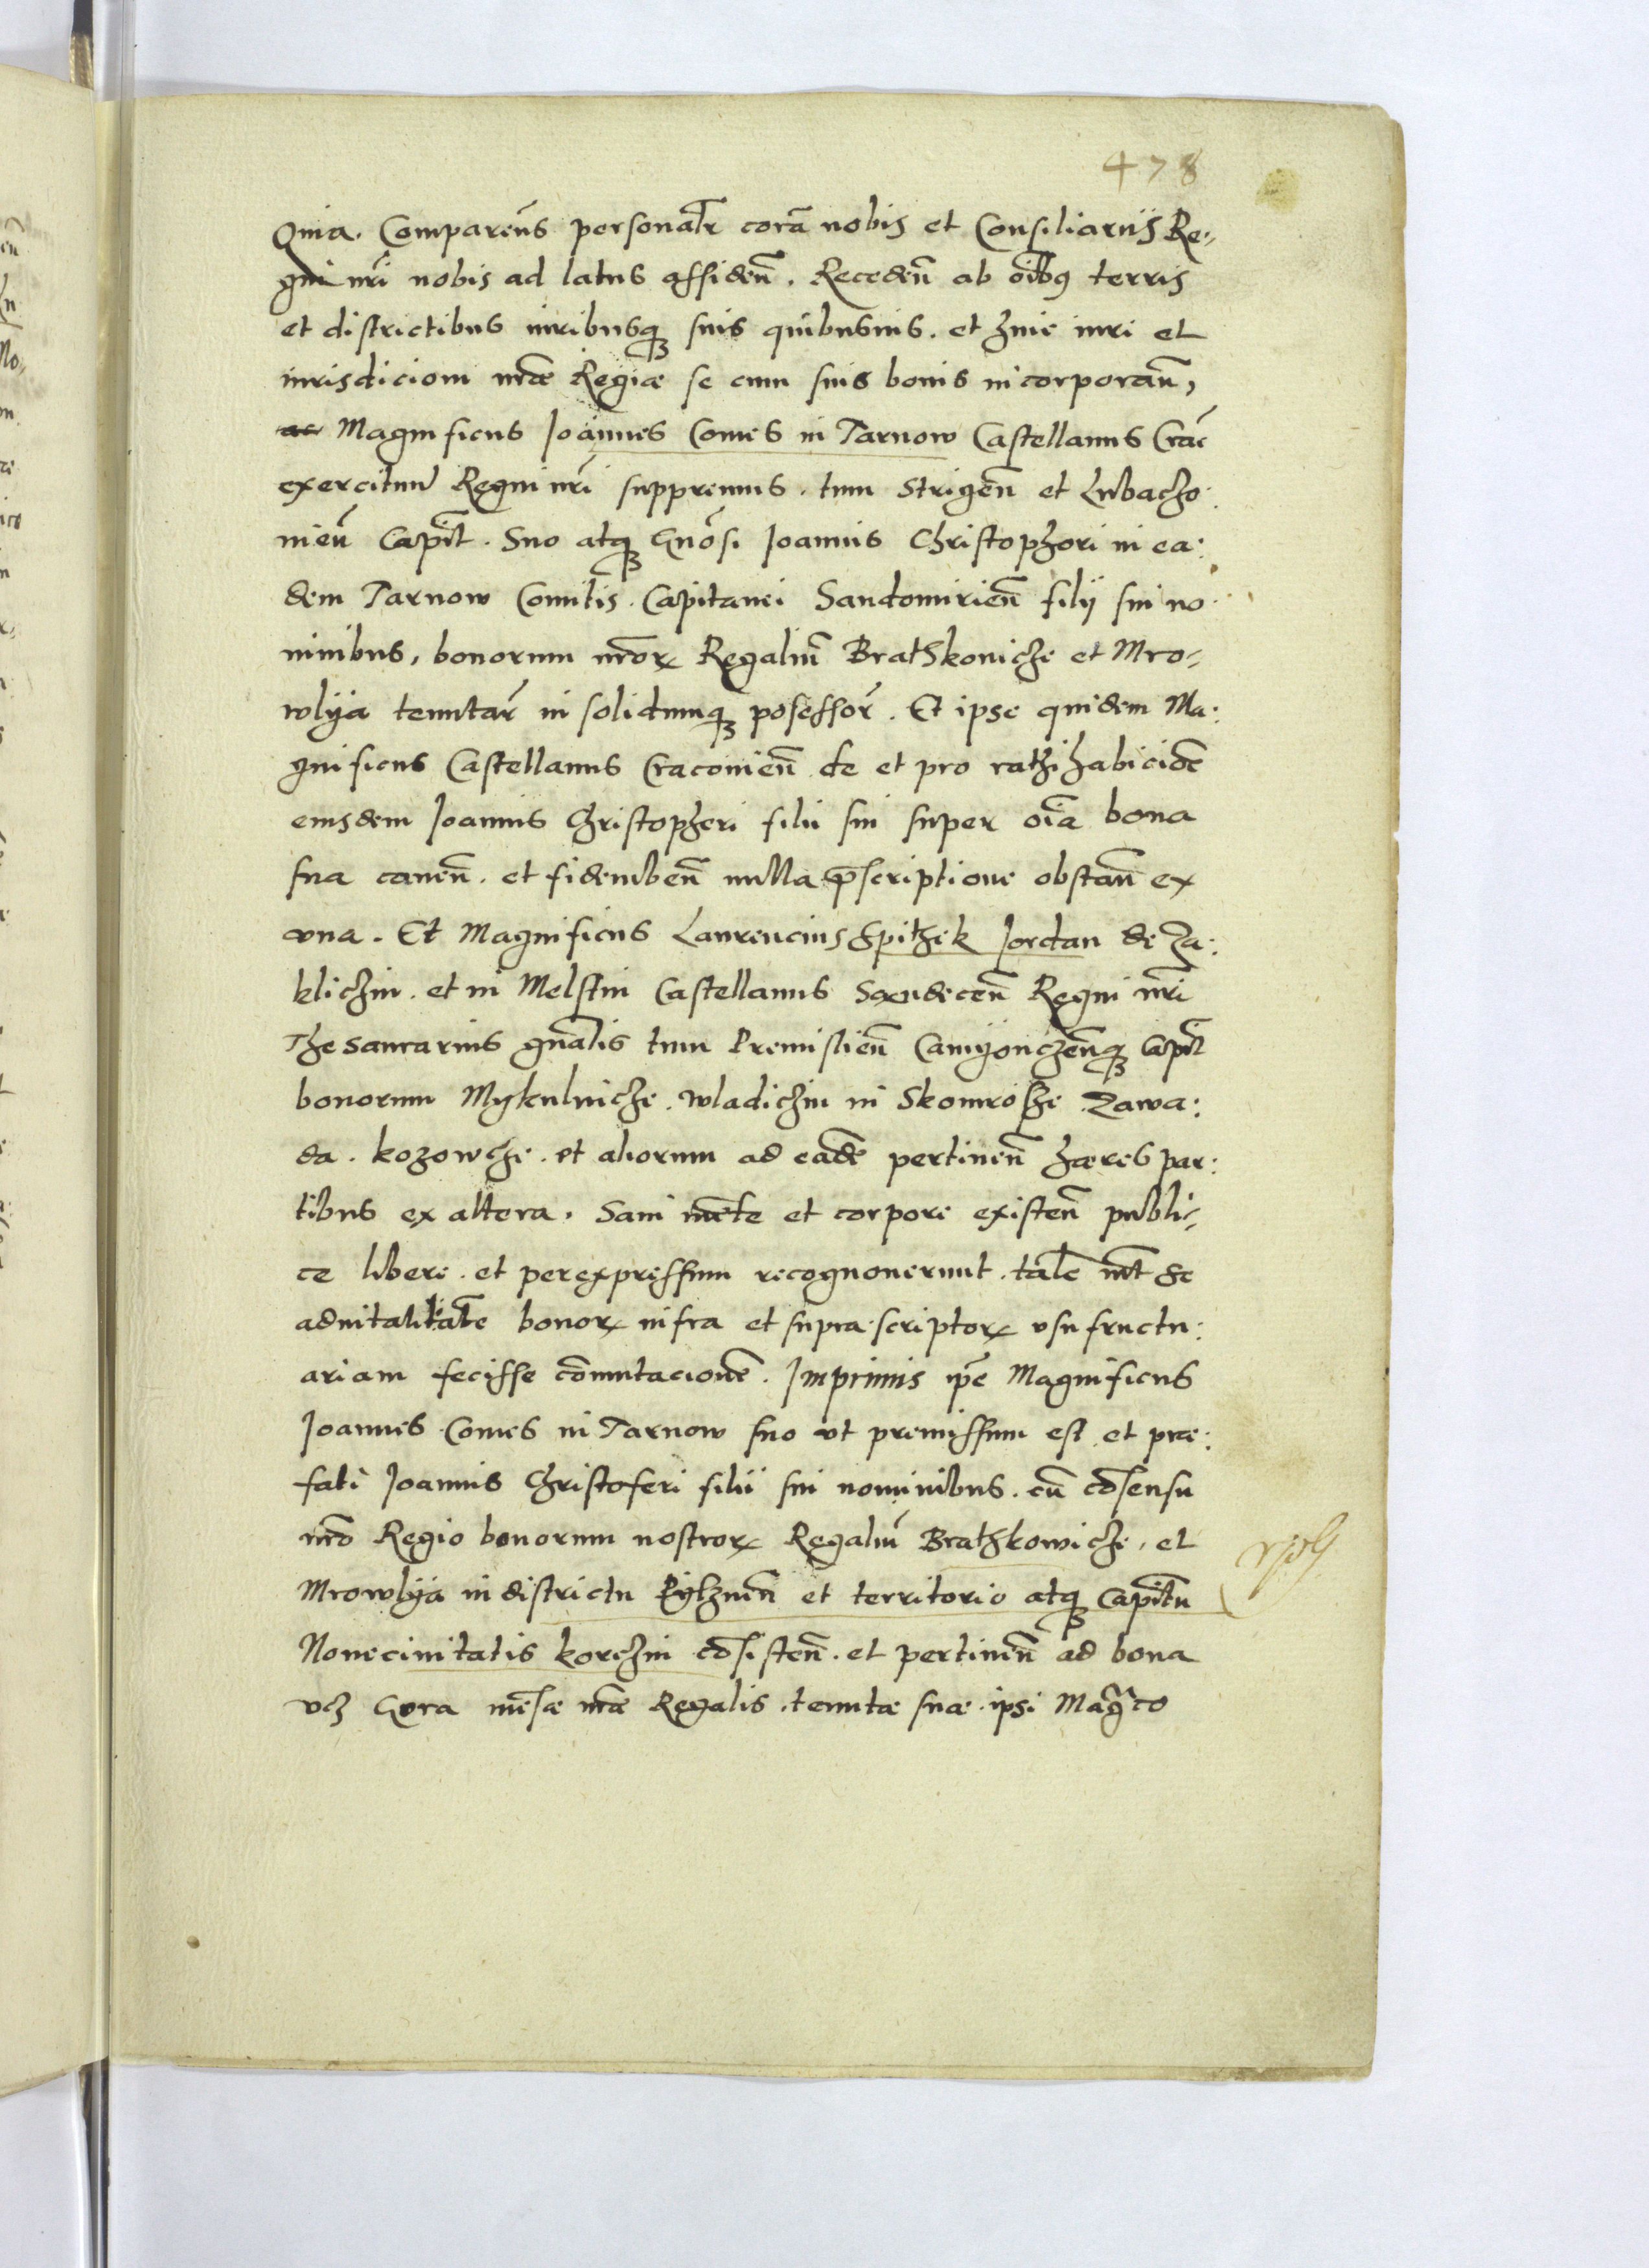 478
Quia. Comparens̃ personalr̃ corã nobis et Consiliariis Re-
gni nr̃i nobis ad latus assideñ. Recedeñ ab oĩbꝰ terris
et districtibus iuribusqꝫ suis quibusuis. et huic iuri et
iurisdicioni nr̃ae Regiae se cum suis bonis incorporañ,
ac Magnificus Joannes Comes in Tarnow Castellanus Crac̃
exercituũ Regni nr̃i suppremus. tum Strigeñ et Lubacho:
uieñ Capit̃. Suo atqꝫ Gñosi Joannis Christophori in ea:
dem Tarnow Comitis. Capitanei Sandomirieñ filij sui no
minibus, bonorum nr̃orꝝ Regaliũ Brathkoniche et Mro-
wlija tenutar̃ in solidumqꝫ possessor̃. Et ipse quidem Ma:
gnificus Castellanus Cracouieñ de et pro rathihabicioẽ
eiusdem Joannis Christopheri filii sui super oĩa bona
sua caueñ. et fideiubeñ nulla p̃scriptione obstañ ex
vna. Et Magnificus Laurencius Spithek Jordan de Za:
klichin. et in Melstin Castellanus Sandeceñ Regni nr̃i
Thesaurarius gñalis tum Premislieñ Camyonczeñqꝫ Capit̃
bonorum Mykulniche. Wladichin in Skomrosche. Zawa:
da. Kozowche. et aliorum ad eadẽ pertineñ haeres par:
tibus ex altera. Sani mẽte et corpore existeñ publi-
ce libere. et per expressum recognouerunt. talẽ int̃ se
aduitalitatẽ bonorꝝ infra et supra scriptorꝝ vsufructu:
ariam fecisse cõmutacionẽ. Imprimis ip̃e Magnificus
Joannes Comes in Tarnow suo vt premissum est. et prae:
fati Joannis Christoferi filii sui nominibus. cũ cõsensu
nr̃o Regio bonorum nostrorꝝ Regaliũ Brathkowiche, et
Mrowlija in districtu Pylzneñ et territorio atqꝫ Capit̃u
Noueciuitatis Korchin cõsisteñ. et pertineñ ad bona
vcz Gora mẽsae nr̃ae Regalis. tenutae suae. ipsi Magc̃o